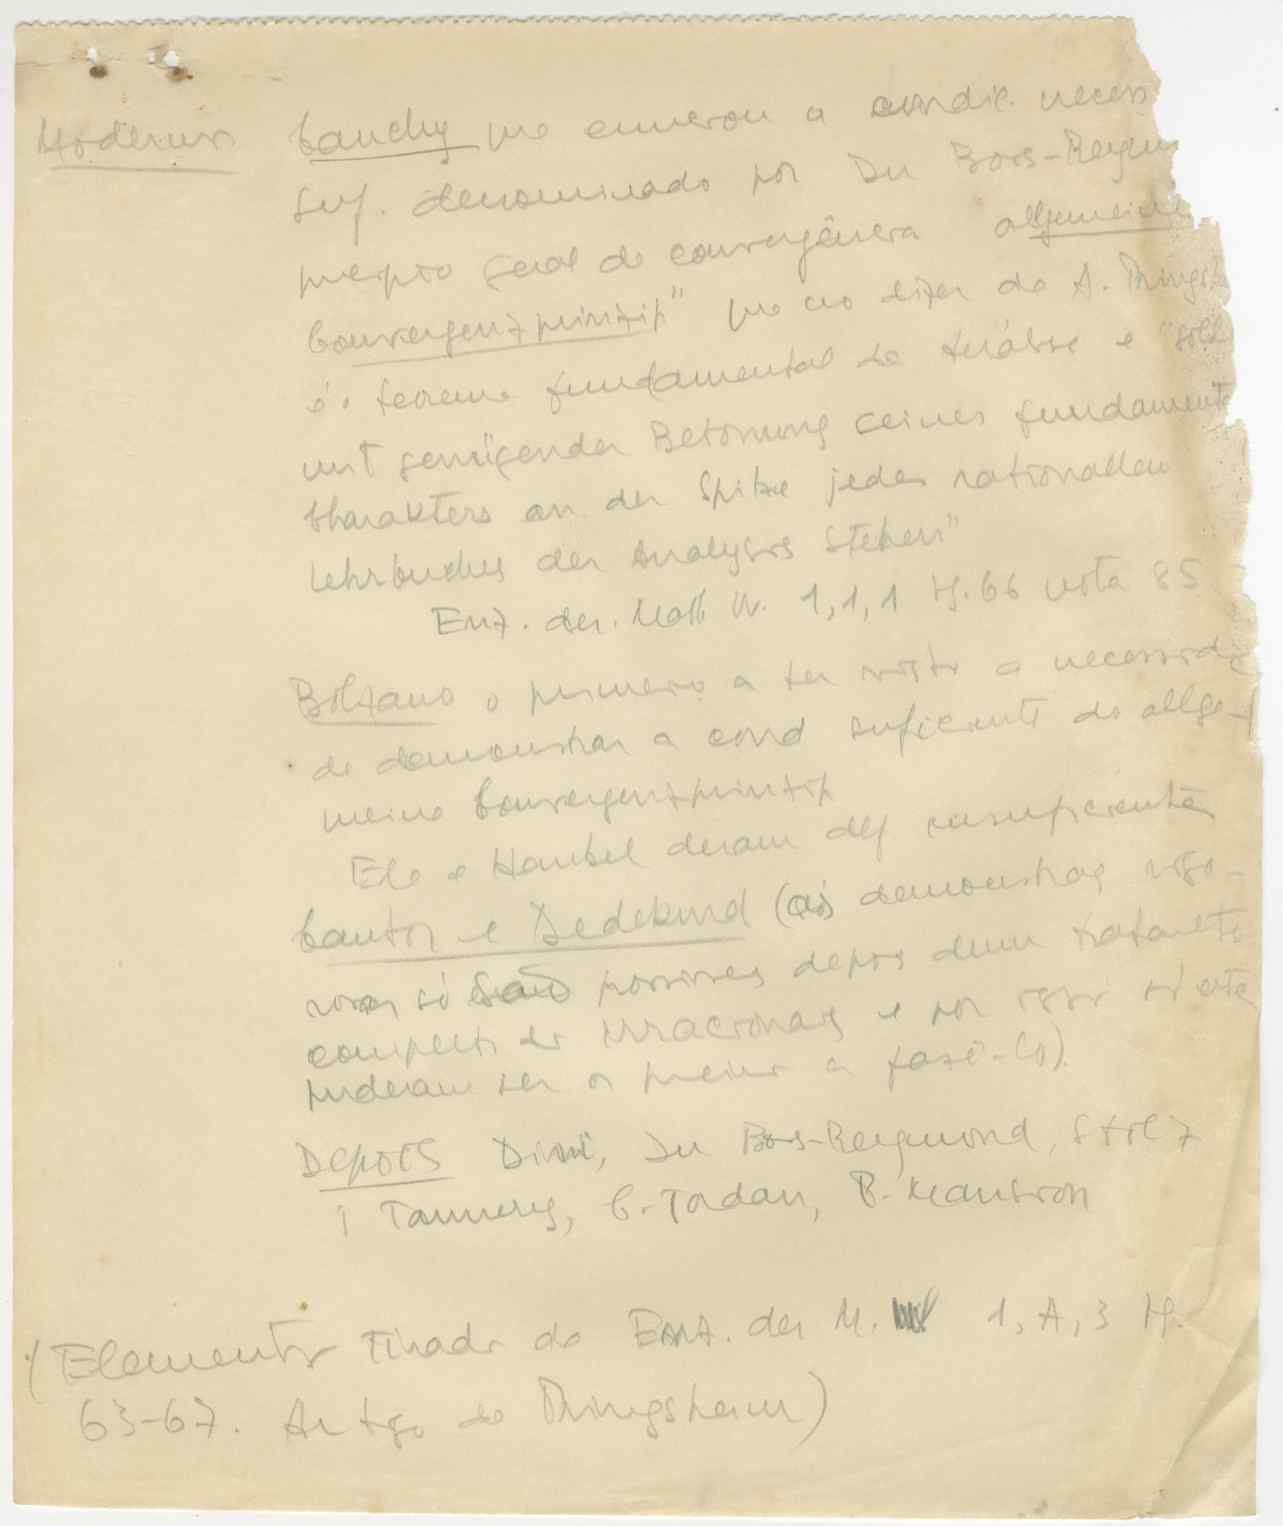 Modernos Cauchy que enunciou a condic. necess
Suf. denominado por Du Bois-Reym
principio geral de convergência allgemeine
Convergenzprinzip" que no dizer de A. Pringsh
é o teorema fundamental da Análise e "soll
mit genügender Betonung seines fundamenta
Charakters an der Spitze jedes rationellen
Lehrbuches der Analysis stehen"
Enz. der. Math W. 1,1,1 pg. 66 nota 85
Bolzano o primeiro a ter visto a necessid
de demonstrar a cond suficiente do allge-
meine Convergenzprinzip
Ele e Hankel deram def. insuficientes
Cantor e Dedekind (as demonstraç rigo-
rosas só são possiveis depois dum tratamento
completo dos irracionais e por isso só estes
puderam ser os primeiros a fazê-lo).
Depois Dini, Du Bois-Reymond, Stolz
J Tannery, C. Jordan, P. Mansion
(Elementos tirados do Enz. der M. 1, A, 3 pg.
63-67. Artigo de Pringsheim)